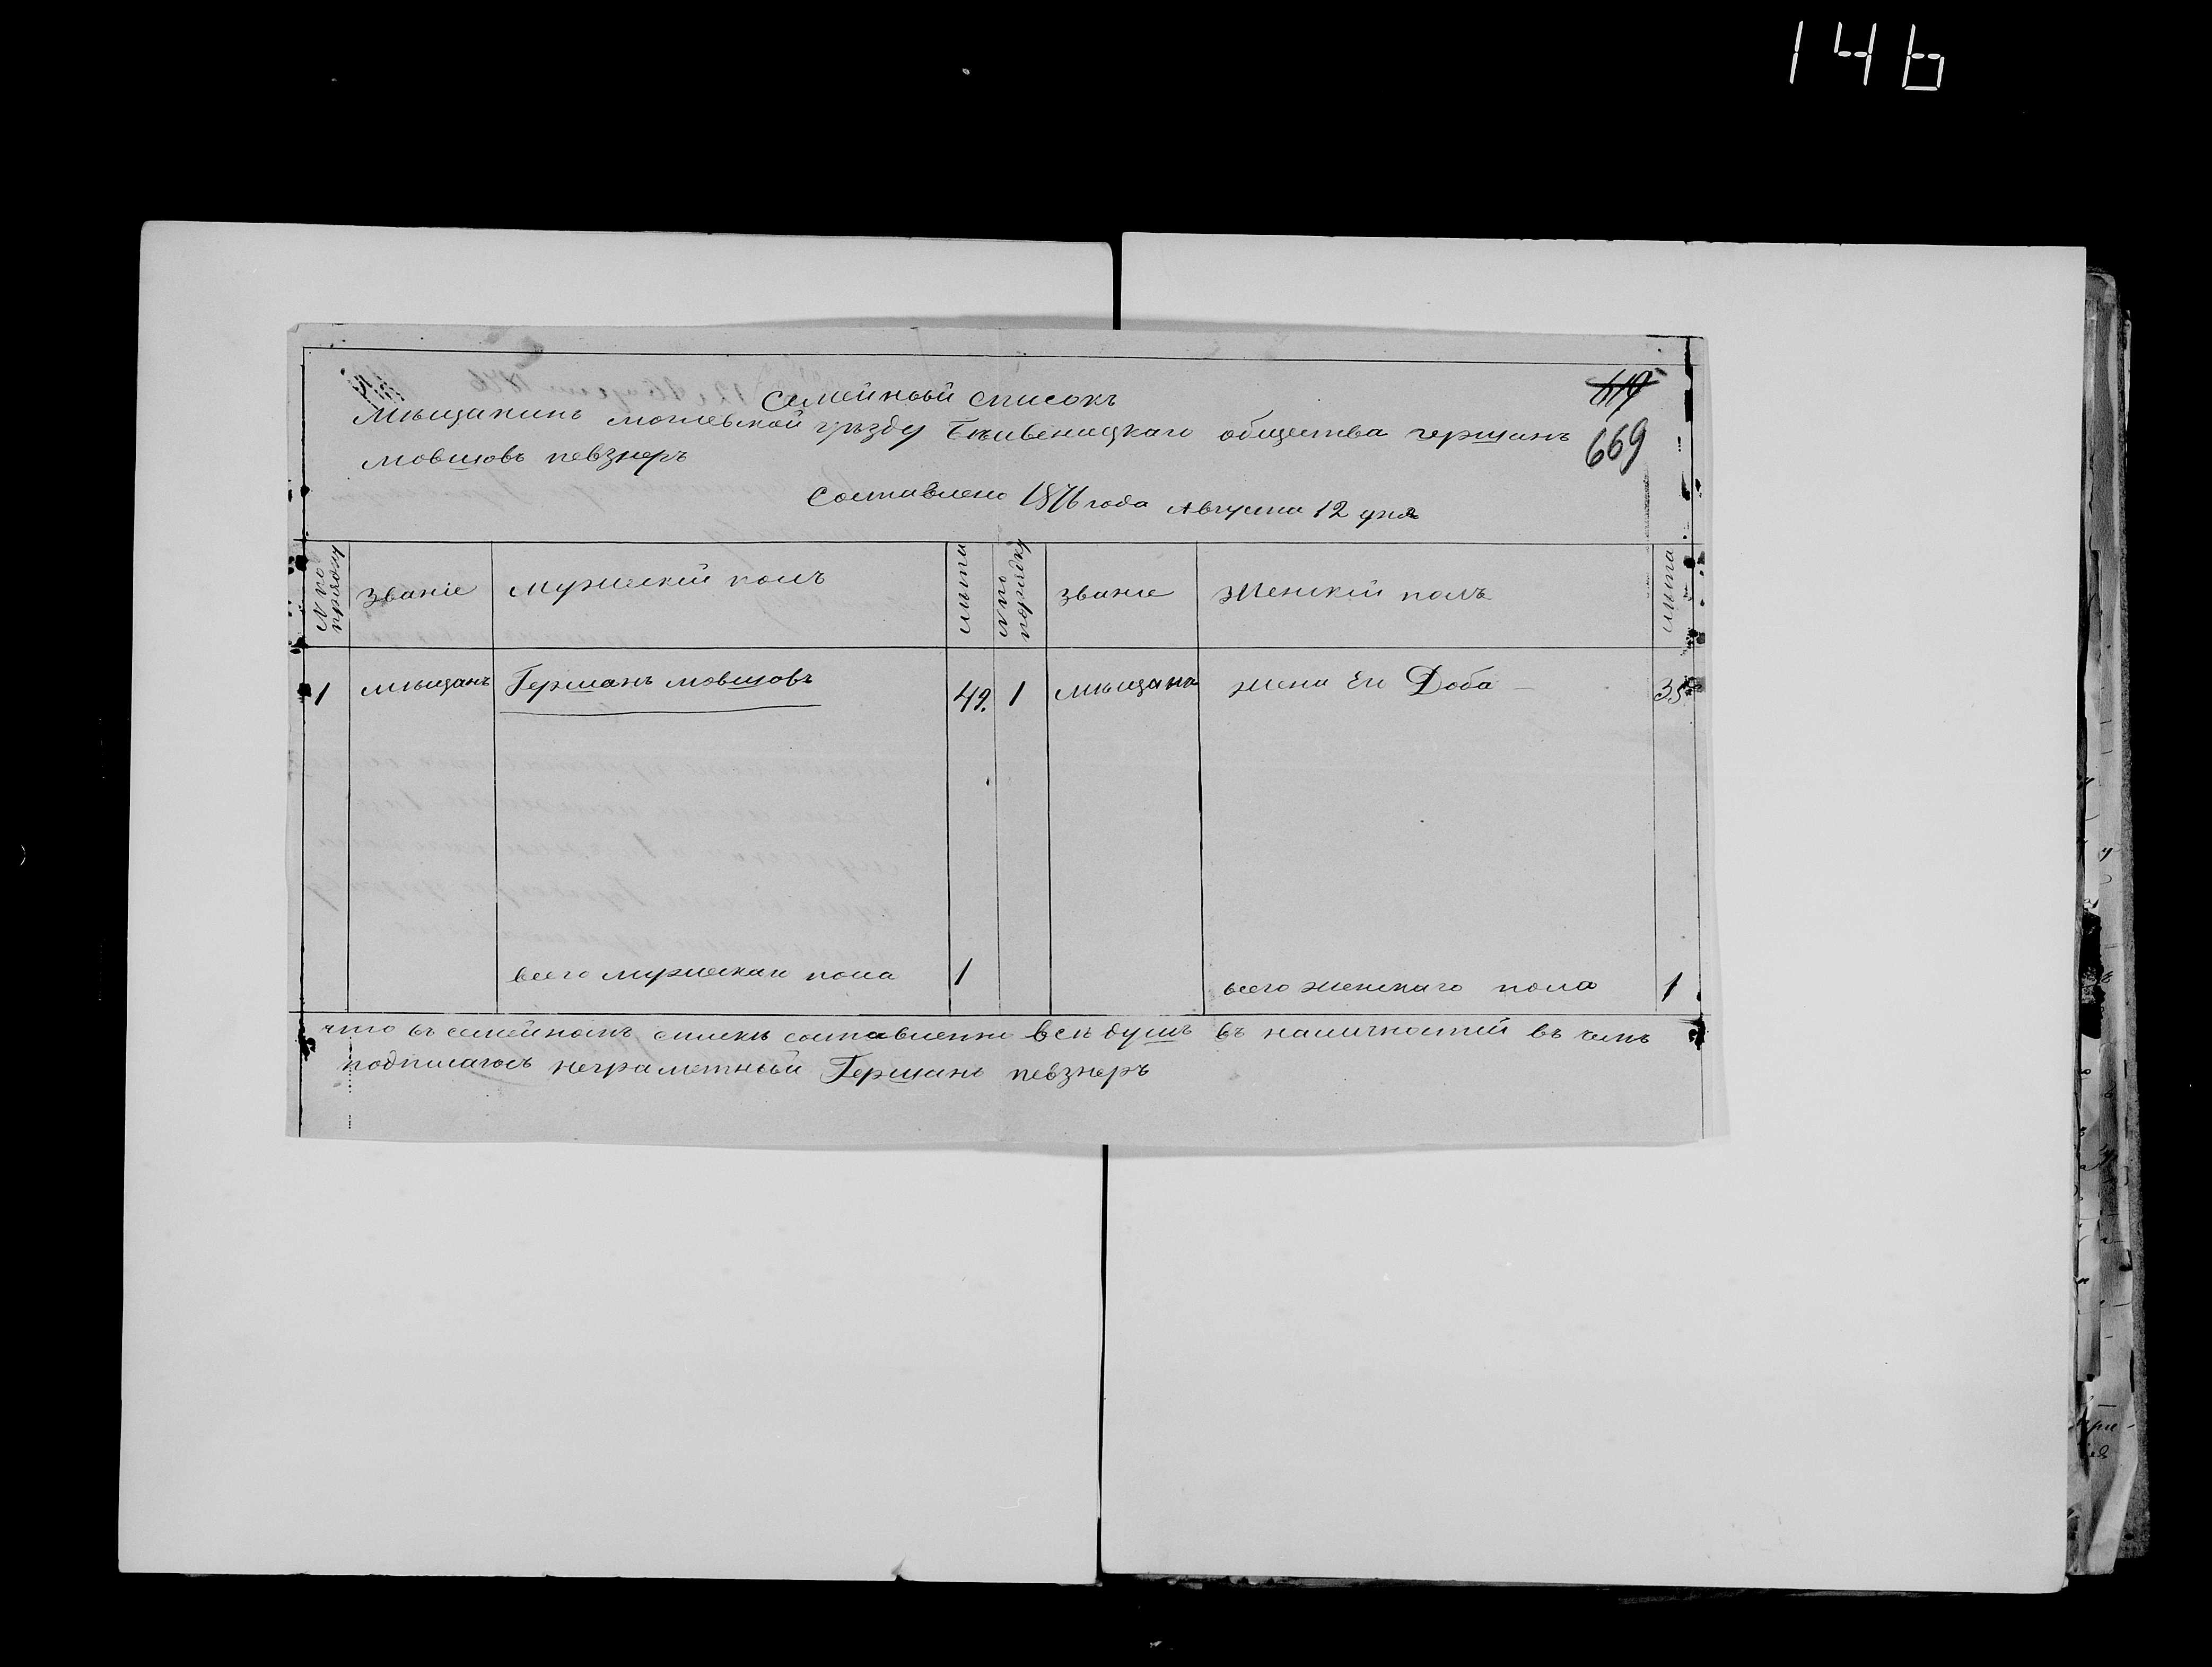 146
Семейный списокъ
619
Мѣщанинъ могилевской уѣзду общества гершанъ
669
Мовшовъ певзнеръ
Составлено 1876 года Августа 12 дня
№ по порядку званіе Мужескій полъ лѣта № по порядку званіе Женскій полъ лѣта
1 мѣщанъ Гершанъ мовшовъ 49. 1 мѣщанка жена Ен Доба 35
всего мужескаго пола 1 всего женскаго пола 1
что въ семейномъ списки составленно всѣ душъ въ наличностий въ чемъ
подписаюсь неграметный Гершанъ певзнеръ